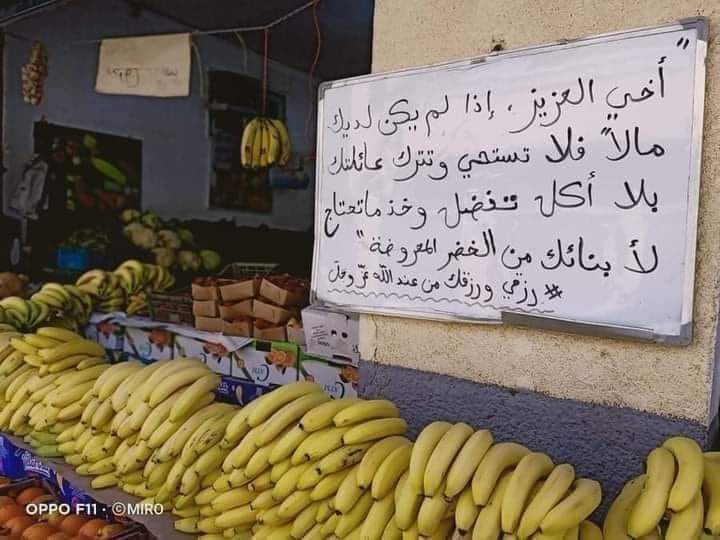 "أخي العزيز، إذا لم يكن لديك
مالاً فلا تستحي وتترك عائلتك
بلا أكل تفضل وخذ ماتحتاج
لأبنائك من الخضر المعروضة"
# رزقي ورزقك من عند الله عزّ وجلّ
OPPO F11 · ©MIRO